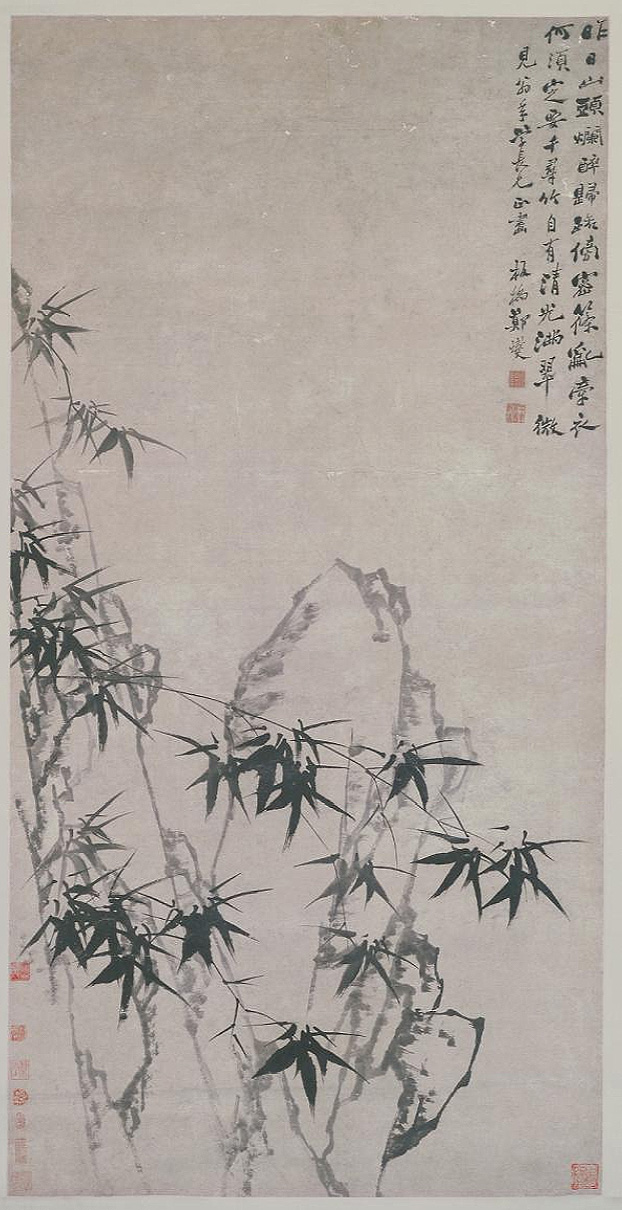 昨日山頭爛醉歸踏傍密篠亂牽衣
何須定要千尋竹自有清光滿翠微
見翁年學長兄正畫 板橋鄭燮